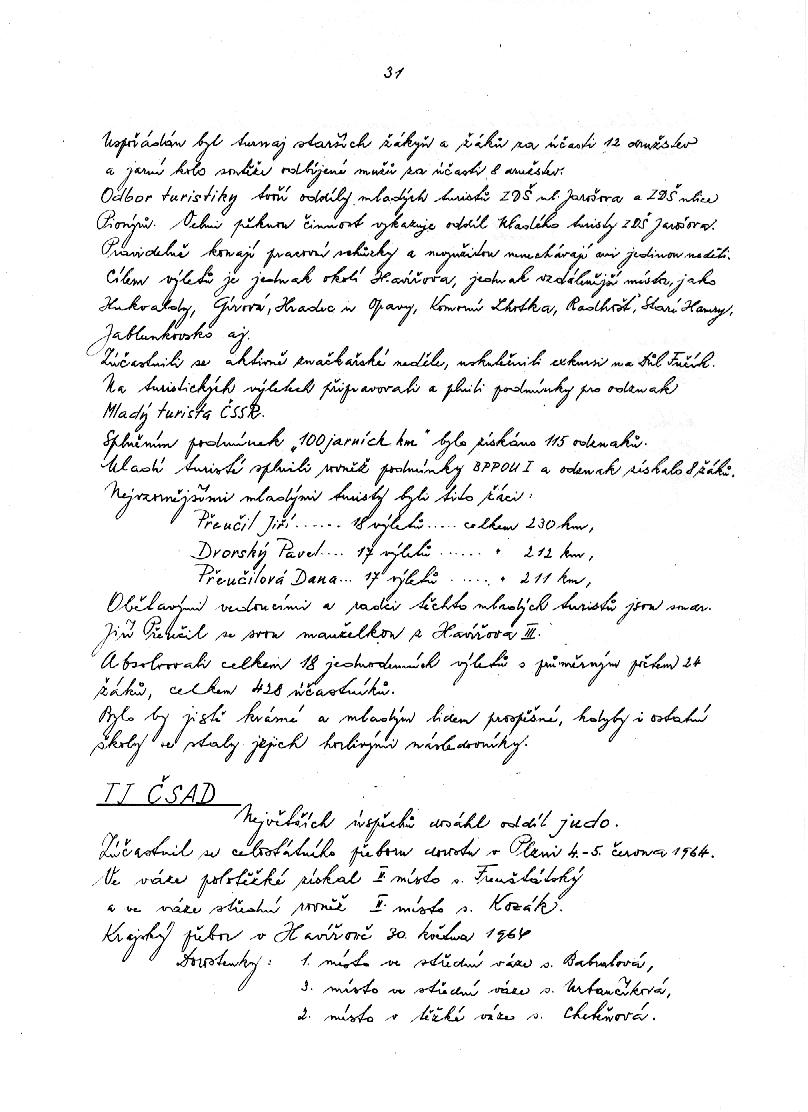 31
Uspořádán byl turnaj starších žákyň a žáků za účasti 12 družstev
a jarní kolo soutěže odbíjené mužů za účasti 8 družstev.
Odbor turistiky tvoří oddíly mladých turistů ZDŠ ul. Jarošova a ZDŠ ulice
Pionýrů. Velmi pěknou činnost vykazuje oddíl Mladého turisty ZDŠ Jarošova.
Pravidelně konají pracovní schůzky a nevyužitou nenechávají ani jedinou neděli.
Cílem výletů je jednak okolí Havířova, jednak vzdálenější místa, jako
Hukvaldy, Gírová, Hradec u Opavy, Komorní Lhotka, Radhošť, Staré Hamry,
Jablunkovsko aj.
Zúčastnili se aktivně značkařské neděle, uskutečnili exkursi na Důl Fučík.
Na turistických výletech připravovali a plnili podmínky pro odznak
Mladý turista ČSSR.
Splněním podmínek „100 jarních km" bylo získáno 115 odznaků.
Mladí turisté splnili rovněž podmínky BPPOV I a odznak získalo 8 žáků.
Nejvzornějšími mladými turisty byli tito žáci:
Přeučil Jiří...... 18 výletů..... celkem 230 km,
Dvorský Pavel.... 17 výletů ...... " 212 km,
Přeučilová Dana... 17 výletů ...... " 211 km,
Obětavými vedoucími a rádci těchto mladých turistů jsou soudr.
Jiří Přeučil se svou manželkou z Havířova III.
Absolvovali celkem 18 jednodenních výletů s průměrným počtem 24
žáků, celkem 428 účastníků.
Bylo by jistě krásné a mladým lidem prospěšné, kdyby i ostatní
školy se staly jejich horlivými následovníky.
TJ ČSAD
Největších úspěchů dosáhl oddíl judo.
Zúčastnil se celostátního přeboru dorostu v Plzni 4.-5. června 1964.
Ve váze polotěžké získal II. místo s. Frenštátský
a ve váze střední rovněž II. místo s. Kozák.
Krajský přebor v Havířově 30. května 1964
Dorostenky: 1. místo ve střední váze s. Babralová,
3. místo ve střední váze s. Urbančíková,
2. místo v těžké váze s.